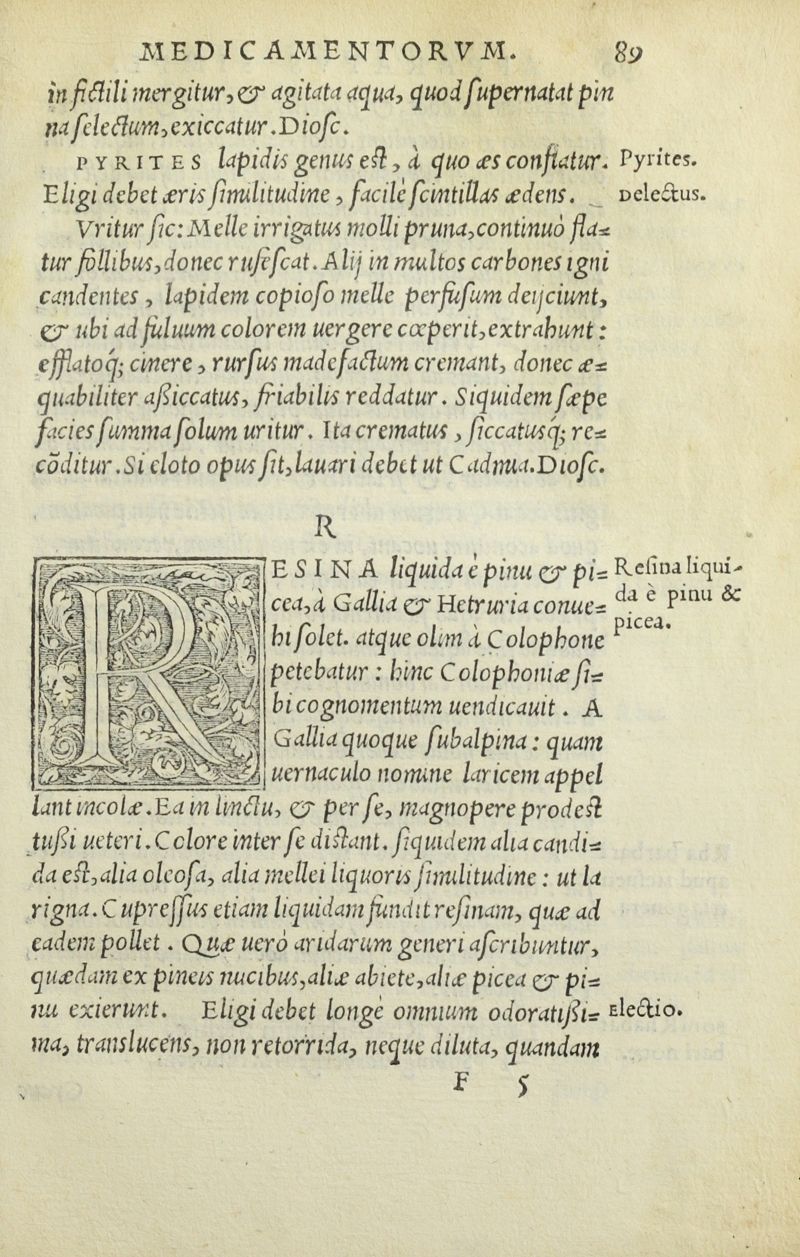 MEDICAMENTORVM. 89
in fictili mergitur, & agitata aqua, quod supernatat pin
na selectum, exiccatur. Diosc.
PYRITES lapidis genus est, à quo æs conflatur. Pyrites.
Eligi debet æris similitudine, facilè scintillas ædens. Delectus.
Vritur sic: Melle irrigatus molli pruna, continuò fla=
tur follibus, donec rufescat. Alij in multos carbones igni
candentes, lapidem copioso melle perfusum deijciunt,
& ubi ad fuluum colorem uergere cœperit, extrahunt:
efflatoq; cinere, rursus madefactum cremant, donec æ=
quabiliter aßiccatus, friabilis reddatur. Siquidem sæpe
facies summa solum uritur. Ita crematus, siccatusq; re=
cõditur. Si eloto opus sit, lauari debet ut Cadmia. Diosc.
R
RESINA liquida è pinu & pi= Resina liqui-
cea, à Gallia & Hetruria conue= da è pinu &
hi solet. atque olim à Colophone picea.
petebatur: hinc Colophoniæ si=
bi cognomentum uendicauit. A
Gallia quoque subalpina: quam
uernaculo nomine laricem appel
lant incolæ. Ea in linctu, & per se, magnopere prodest
tußi ueteri. Colore inter se distant. siquidem alia candi=
da est, alia oleosa, alia mellei liquoris similitudine: ut la
rigna. Cupressus etiam liquidam fundit resinam, quæ ad
eadem pollet. Quæ uerò aridarum generi ascribuntur,
quædam ex pineis nucibus, aliæ abiete, aliæ picea & pi=
nu exierunt. Eligi debet longè omnium odoratißi= Electio.
ma, translucens, non retorrida, neque diluta, quandam
F 5